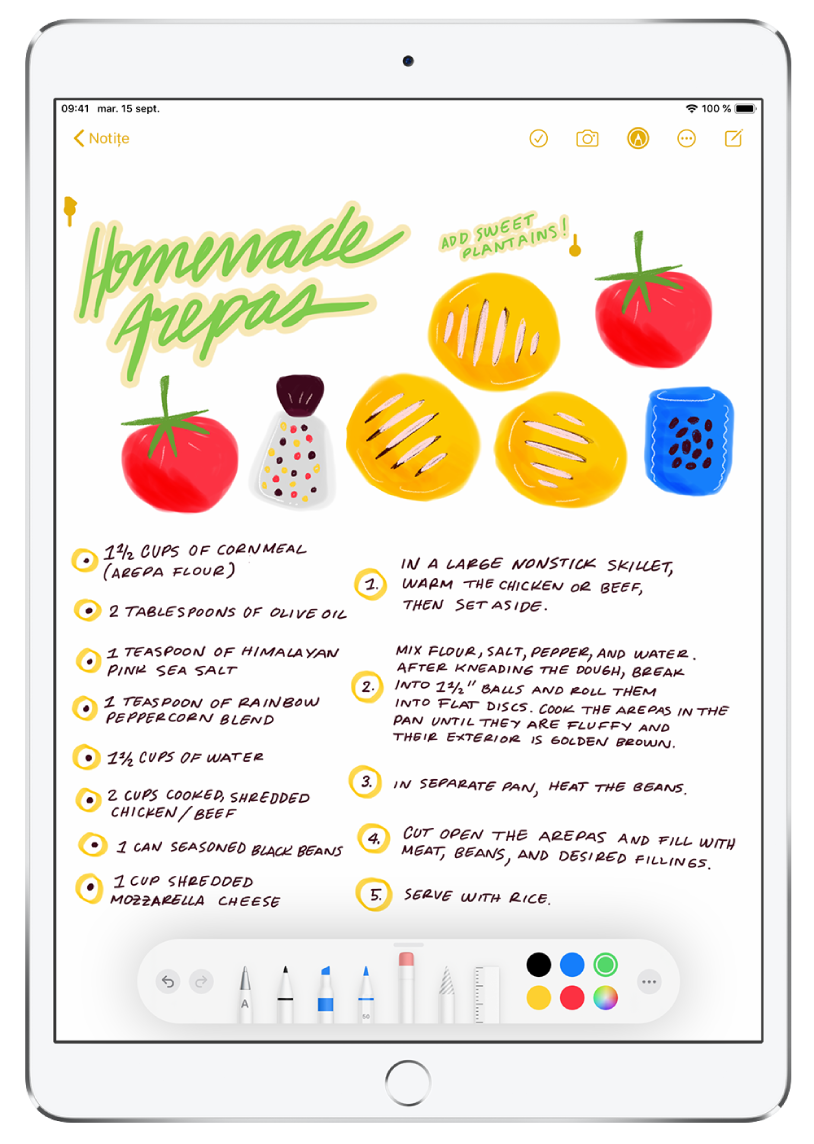 09:41 mar. 15 sept.
100 %
Notițe
Homemade
Arepas
ADD SWEET
PLANTAINS!
1 1/2 CUPS OF CORNMEAL
(AREPA FLOUR)
2 TABLESPOONS OF OLIVE OIL
1 TEASPOON OF HIMALAYAN
PINK SEA SALT
1 TEASPOON OF RAINBOW
PEPPERCORN BLEND
1 1/2 CUPS OF WATER
2 CUPS COOKED, SHREDDED
CHICKEN/BEEF
1 CAN SEASONED BLACK BEANS
1 CUP SHREDDED
MOZZARELLA CHEESE
1. IN A LARGE NONSTICK SKILLET,
WARM THE CHICKEN OR BEEF,
THEN SET ASIDE.
2. MIX FLOUR, SALT, PEPPER, AND WATER.
AFTER KNEADING THE DOUGH, BREAK
INTO 1 1/2" BALLS AND ROLL THEM
INTO FLAT DISCS. COOK THE AREPAS IN THE
PAN UNTIL THEY ARE FLUFFY AND
THEIR EXTERIOR IS GOLDEN BROWN.
3. IN SEPARATE PAN, HEAT THE BEANS.
4. CUT OPEN THE AREPAS AND FILL WITH
MEAT, BEANS, AND DESIRED FILLINGS.
5. SERVE WITH RICE.
A
50